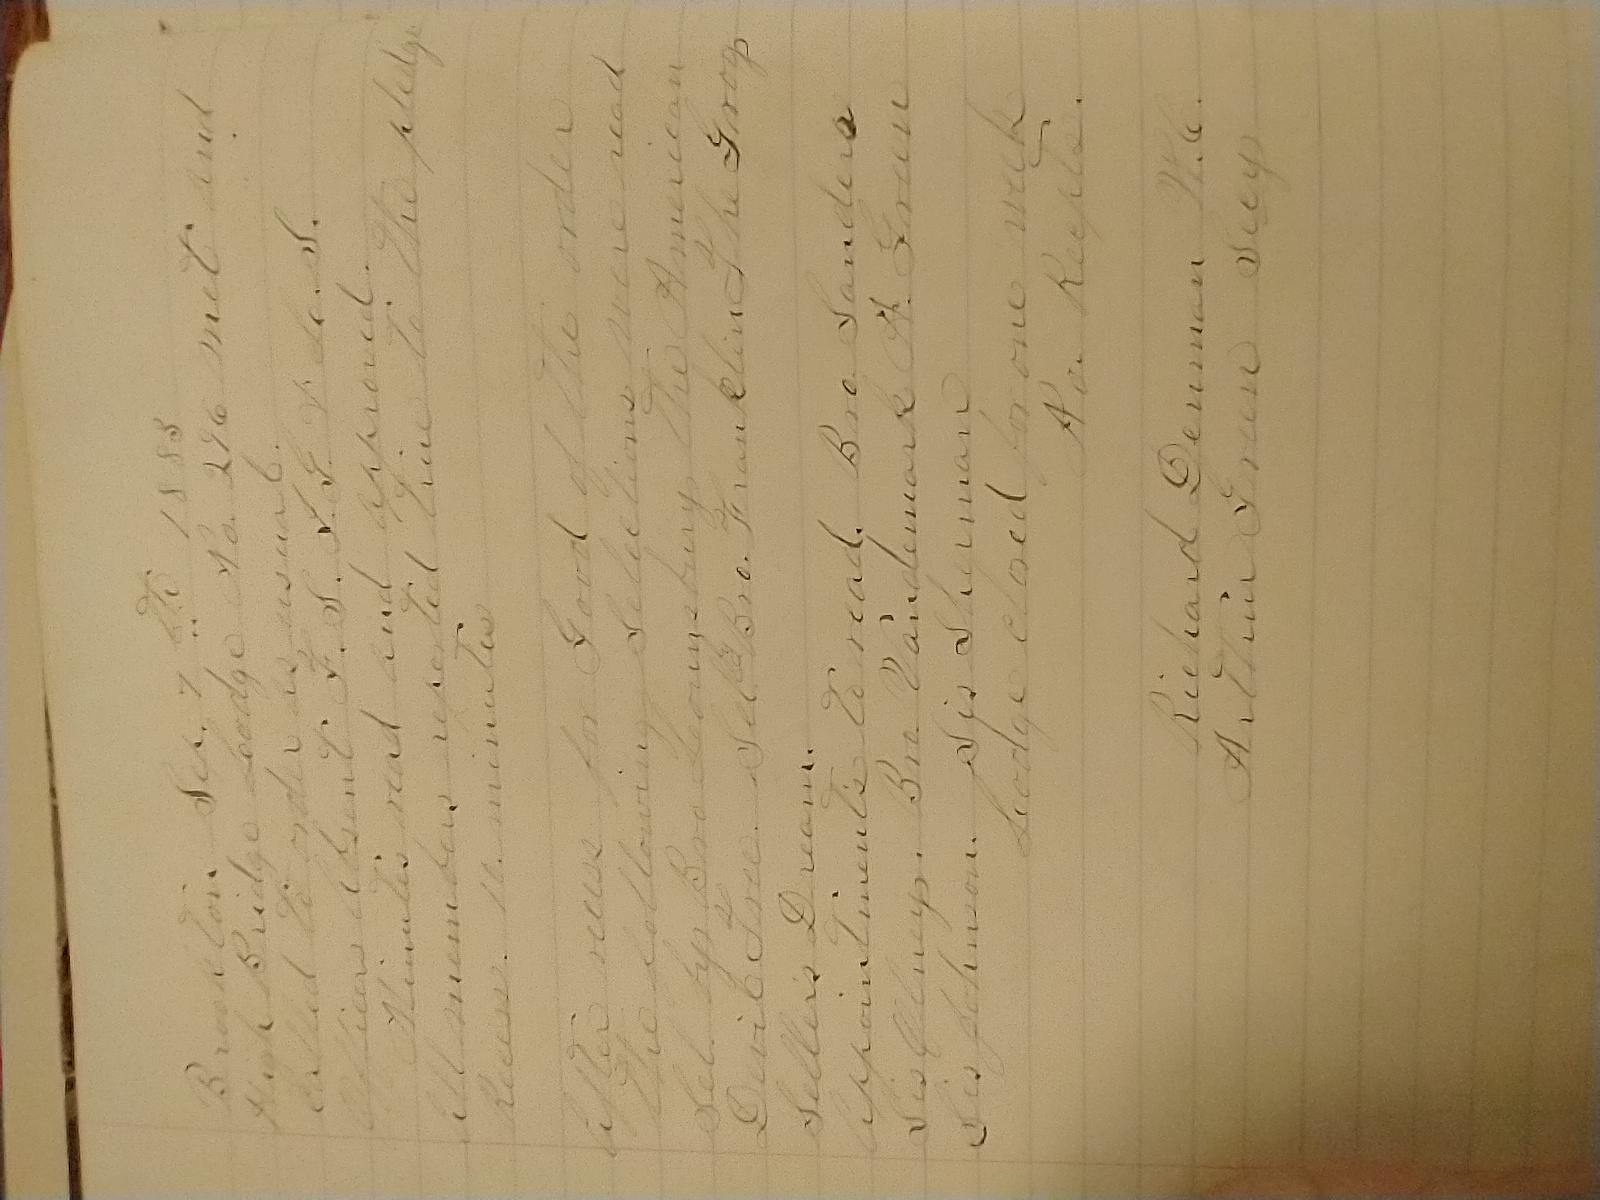 Brookton Sep. 7th 1883
High Bridge Lodge No. 296 met and
called to order as usual.
Officers Absent F. S. I. G. & L. S.
Minutes read and approved.
All members reported true to the pledge
Recess. 10. minutes
After recess for Good of the order
the following Selections were read
Sel. by Bro Lounsbury the American
Devil Tree. Sel. by Bro. Franklin The Grog
Seller's Dream.
Appointments to read. Bro. Sanders
Sis Olney. Bro. Vandemark A. Green
Sis Johnson. Sis Sherman
Lodge closed for one week
No. Recpts.
Richard Denman W.C.
Arthur Green Secy